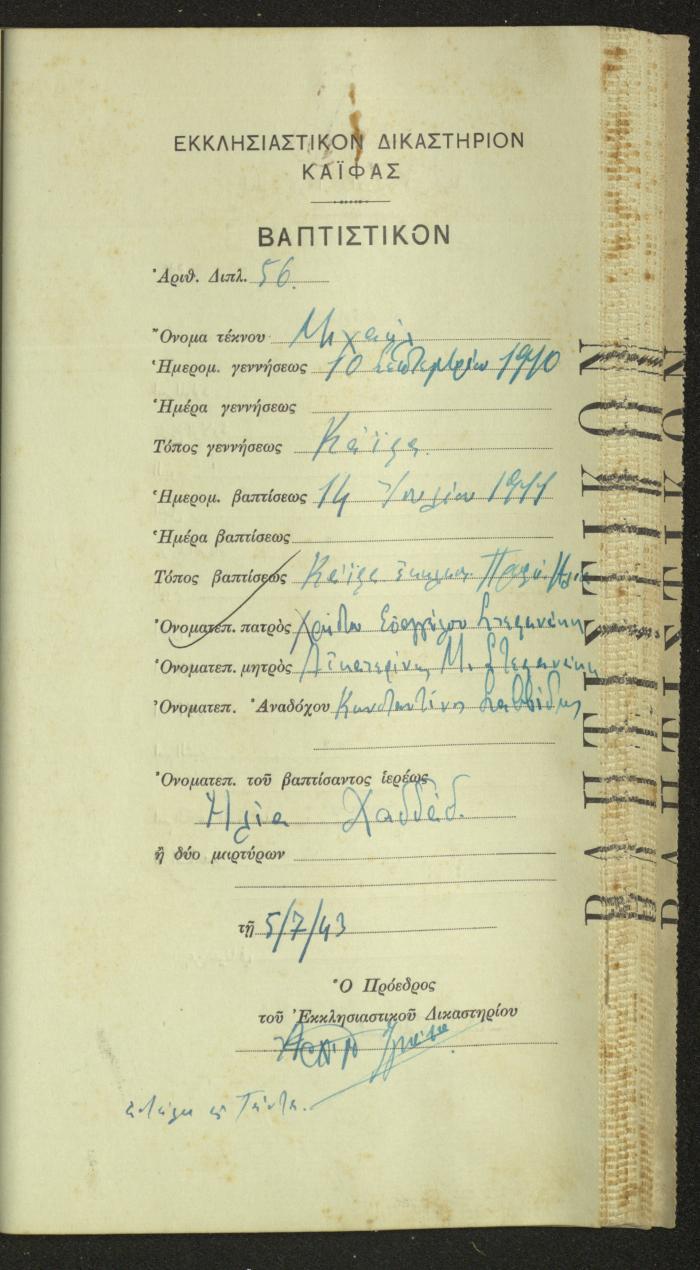 ΕΚΚΛΗΣΙΑΣΤΙΚΟΝ ΔΙΚΑΣΤΗΡΙΟΝ
ΚΑΪΦΑΣ
ΒΑΠΤΙΣΤΙΚΟΝ
Ἀριθ. Διπλ. 56.
Ὄνομα τέκνου Μιχαήλ
Ἡμερομ. γεννήσεως 10 Σεπτεμβρίου 1910
Ἡμέρα γεννήσεως
Τόπος γεννήσεως Κάϊφα
Ἡμερομ. βαπτίσεως 14 Ἰουλίου 1911
Ἡμέρα βαπτίσεως
Τόπος βαπτίσεως Κάϊφα
Ὀνοματεπ. πατρὸς Χρήστου Εὐαγγέλου Στεφανάκη
Ὀνοματεπ. μητρὸς Αἰκατερίνης Μ. Στεφανάκη
Ὀνοματεπ. Ἀναδόχου Κωνσταντῖνος Σαββίδης
Ὀνοματεπ. τοῦ βαπτίσαντος ἱερέως
Ἠλία Χαδδάδ.
ἢ δύο μαρτύρων
τῇ 5/7/43
Ὁ Πρόεδρος
τοῦ Ἐκκλησιαστικοῦ Δικαστηρίου
ΒΑΠΤΙΣΤΙΚΟΝ